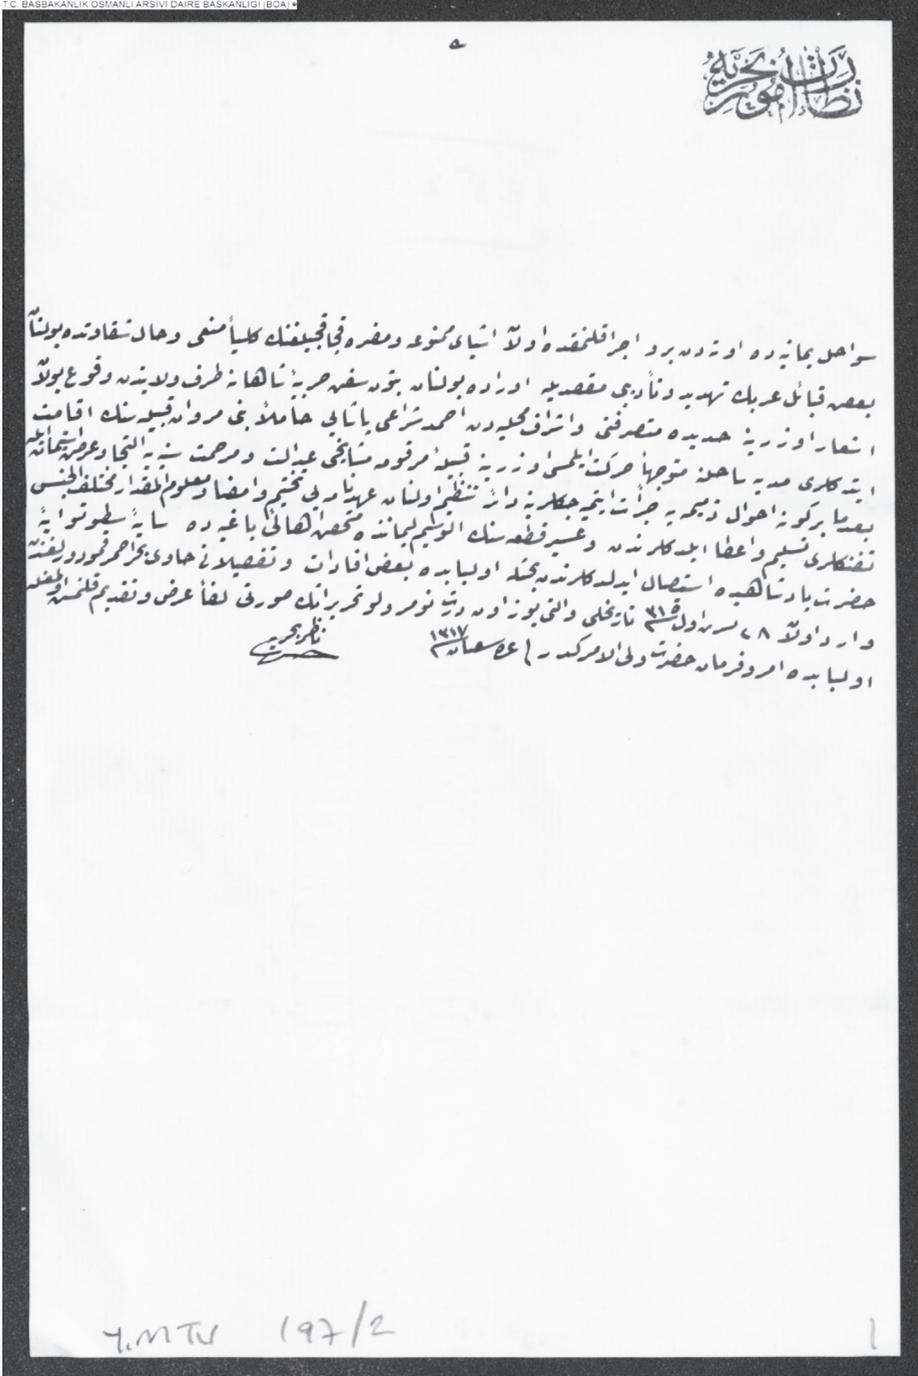 T.C. BASBAKANLIK OSMANLI ARSIVI DAIRE BASKANLIGI (BOA)
نظارت امور بحریه
سواحل یمانیه ده اوته دن برو اجرا قلنمقده اولان اشیای ممنوعه و مضره قچاقجیلغنك كلیاً منعی و حال شقاوتده بولنان
بعض قبائل عربك تهدید و تأدیبی مقصدیله اوراده بولنان بتون سفن حربیهٔ شاهانه طرف ولایتدن وقوع بولان
اشعار اوزرینه حدیده متصرفنی و اشراف محلیه دن احمد شراعی پاشایی حاملاً بنی مروان قبیله سنك اقامت
ایتدكلری مدیه ساحلنه متوجهاً حركت ایلمسی اوزرینه قبیلهٔ مرقومه مشایخی عدالت و مرحمت سنیه یه التجا و عرض استیمان ایله
بعدما بر كونه احوال ذمیمه یه جرأت ایتمیه جكلرینه دائر تنظیم اولنان عهدنامه یی تختیم و امضا و معلوم المقدار مختلف الجنس
تفنكلری تسلیم و اعطا ایلدكلرندن و عسیر قطعه سنك الوشیم لیماننده متحصن اهالیٔ باغیه ده سایهٔ سطوتوایهٔ
حضرت پادشاهیده استحصال ایدلدكلرندن بحثله اولبابده بعض افادات و تفصیلاتی حاوی بحر احمر قومودورلغندن
وارد اولان ٢٨ تشرین اول ٣١٥ تاریخلی و التی یوز اون درت نومرولو تحریراتك صورتی لفاً عرض و تقدیم قلنمش اولمغله
اولبابده امر و فرمان حضرت ولی الامركدر فی شعبان ١٣١٧
ناظر بحریه
Y.MTV 197/2
1